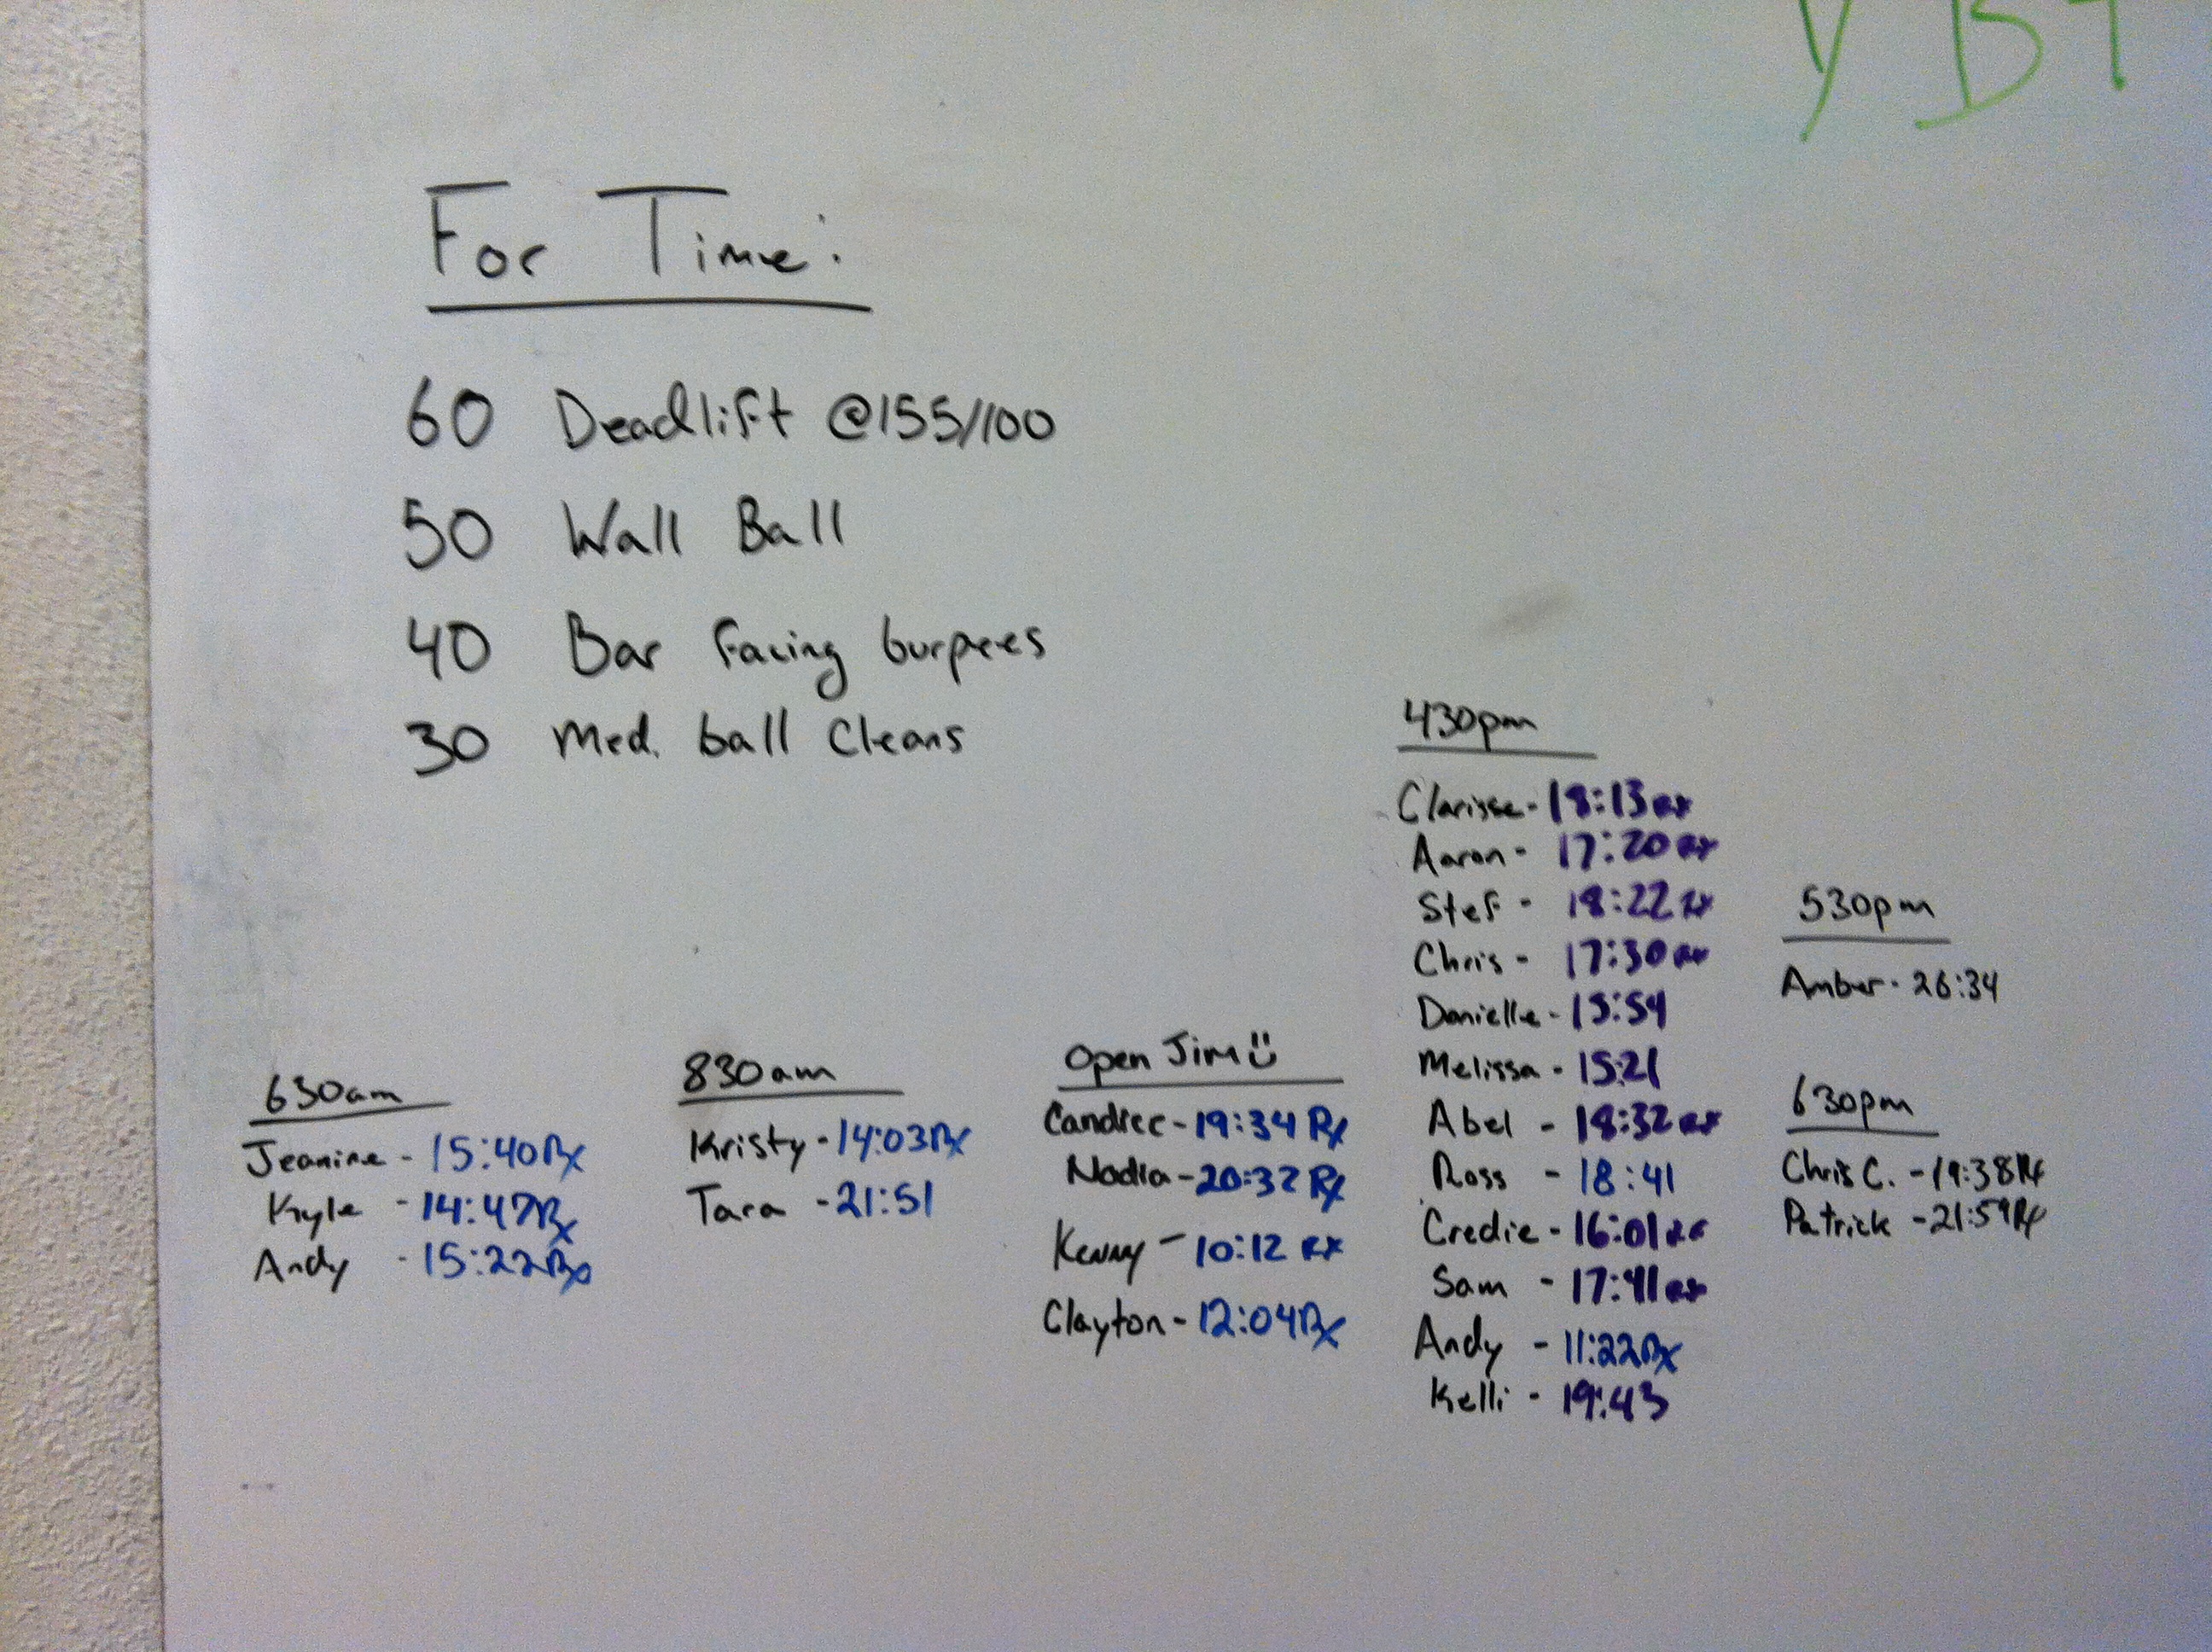 For Time:
60 Deadlift @155/100
50 Wall Ball
40 Bar facing burpees
30 Med. ball Cleans
630am
Jeanine - 15:40 Rx
Kyle - 14:47 Rx
Andy - 15:22 Rx
830am
Kristy - 14:03 Rx
Tara - 21:51
Open Jim
Candice - 19:34 Rx
Nadia - 20:32 Rx
Kenny - 10:12 Rx
Clayton - 12:04 Rx
430pm
Clarisse - 18:13 Rx
Aaron - 17:20 Rx
Stef - 18:22 Rx
Chris - 17:30 Rx
Danielle - 15:54
Melissa - 15:21
Abel - 18:32 Rx
Ross - 18:41
Credie - 16:01 Rx
Sam - 17:41 Rx
Andy - 11:22 Rx
Kelli - 19:43
530pm
Amber - 26:34
630pm
Chris C. - 19:38 Rx
Patrick - 21:59 Rx